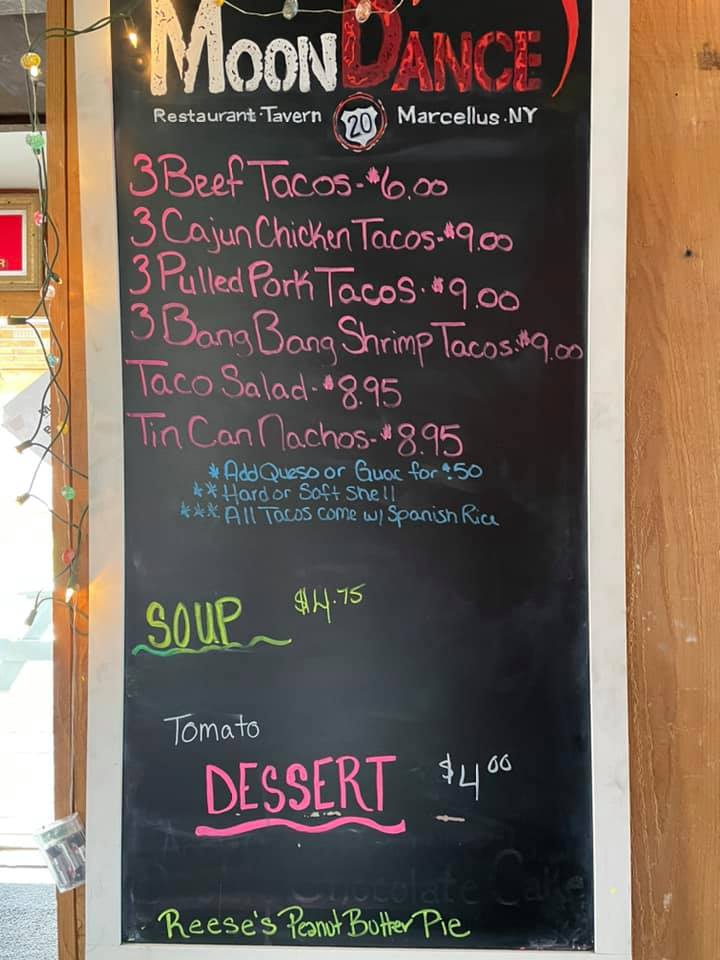 MOONDANCE
Restaurant·Tavern 20 Marcellus·NY
3 Beef Tacos-$6.00
3 Cajun Chicken Tacos-$9.00
3 Pulled Pork Tacos-$9.00
3 Bang Bang Shrimp Tacos-$9.00
Taco Salad-$8.95
Tin Can Nachos-$8.95
*Add Queso or Guac for $.50
**Hard or Soft Shell
***All Tacos come w/ Spanish Rice
SOUP $4.75
Tomato
DESSERT $4.00
Chocolate Cake
Reese's Peanut Butter Pie